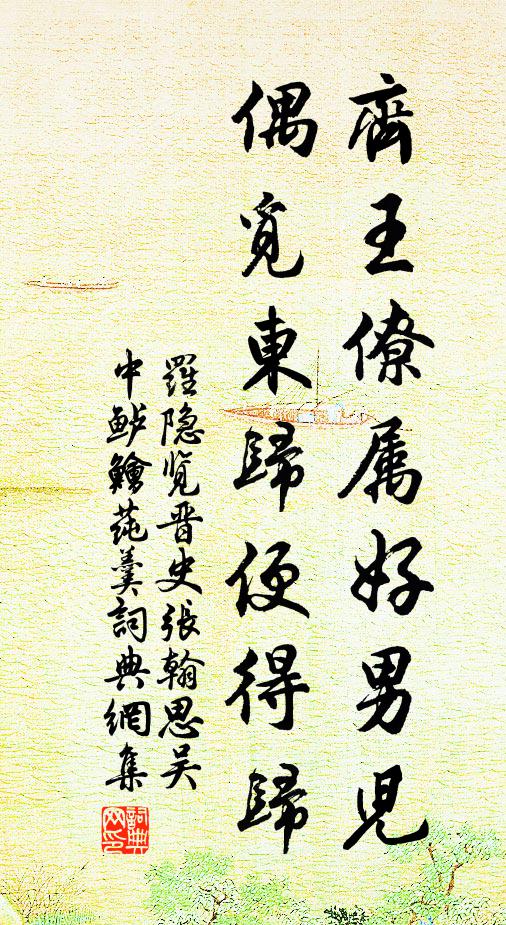 齊王僚属好男児
偶覓東歸便得歸
羅隐覧晋史張翰思吴
中鲈鱠莼羹詞典網集
詞典网印